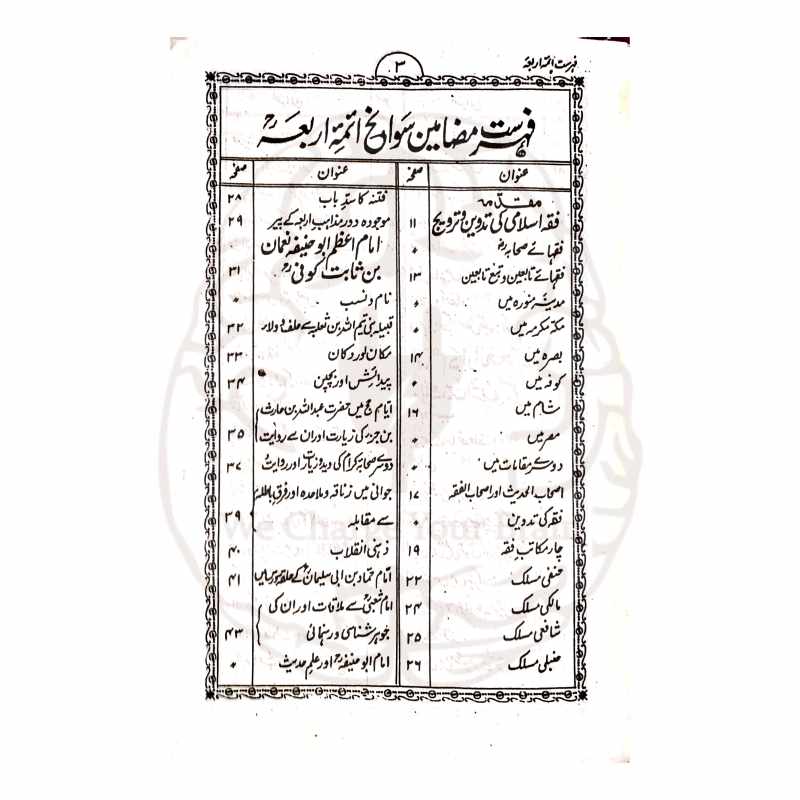 فہرست ائمہ اربعہ
۳
فہرست مضامین سوانح ائمۂ اربعہ رح
عنوان صفحہ
مقدمہ
فقہ اسلامی کی تدوین و ترویج ۱۱
فقہائے صحابہ رض "
فقہائے تابعین و تبع تابعین ۱۳
مدینہ منورہ میں "
مکہ مکرمہ میں "
بصرہ میں ۱۴
کوفہ میں "
شام میں ۱۶
مصر میں "
دوسرے مقامات میں "
اصحاب الحدیث اور اصحاب الفقہ ۱۷
فقہ کی تدوین "
چار مکاتب فقہ ۱۹
حنفی مسلک ۲۲
مالکی مسلک ۲۴
شافعی مسلک ۲۵
حنبلی مسلک ۲۶
عنوان صفحہ
فتنہ کا سدِ باب ۲۸
موجودہ دور مذاہب اربعہ کے پیر ۲۹
امام اعظم ابو حنیفہ نعمان
بن ثابت کوفی رح ۳۱
نام و نسب "
قبیلہ بنی تیم اللہ بن ثعلبہ سے حلف و ولار ۳۲
مکان اور دکان ۳۳
پیدائش اور بچپن ۳۴
ایام حج میں حضرت عبداللہ بن حارث
بن جزء کی زیارت اور ان سے روایت ۳۵
دوسرے صحابۂ کرام کی دید و زیارت اور روایت ۳۷
جوانی میں زنادقہ و ملاحدہ اور فرقِ باطلہ
سے مقابلہ ۳۹
ذہنی انقلاب ۴۰
امام حماد بن ابی سلیمان کے حلقہ میں ۴۱
امام شعبی رح سے ملاقات اور ان کی
جوہر شناسی و رہنمائی ۴۳
امام ابو حنیفہ رح اور علم حدیث "
We Change Your